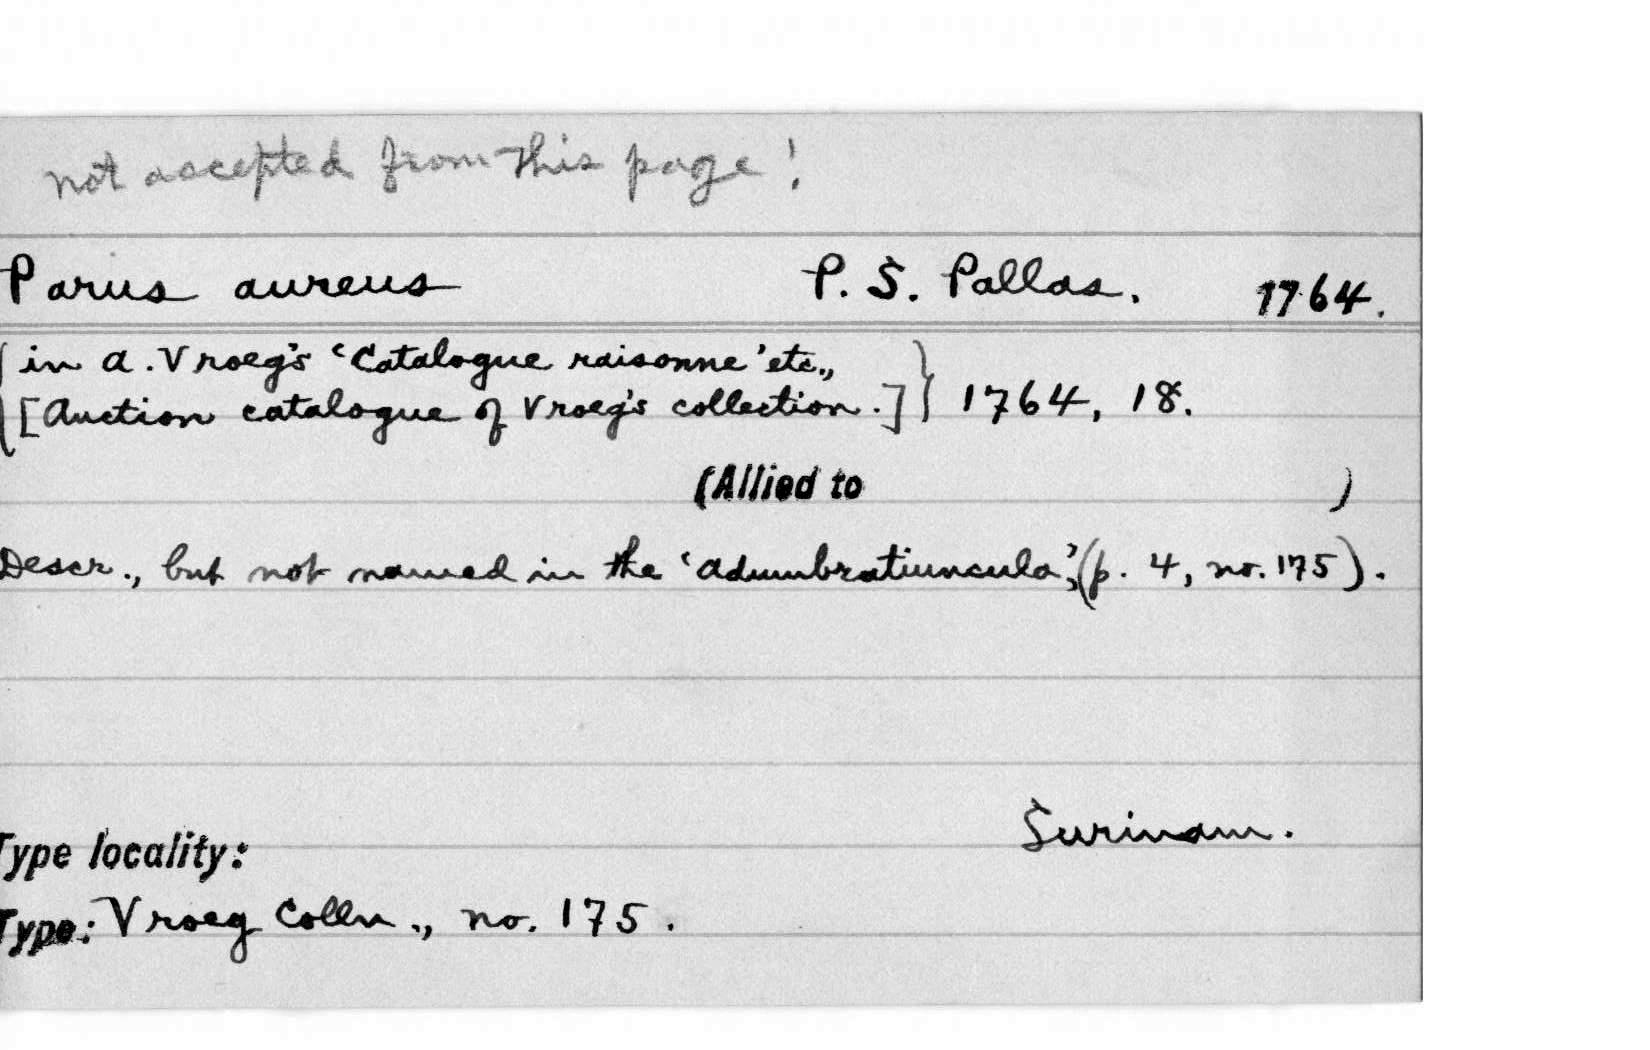 not accepted from this page!
Parus aureus P. S. Pallas. 1764.
{in A. Vroeg's 'Catalogue raisonne' etc.,
[Auction catalogue of Vroeg's collection.]} 1764, 18.
(Allied to )
Descr., but not named in the 'Adumbratiuncula', (p. 4, no. 175).
Surinam.
Type locality:
Type: Vroeg Colln., no. 175.